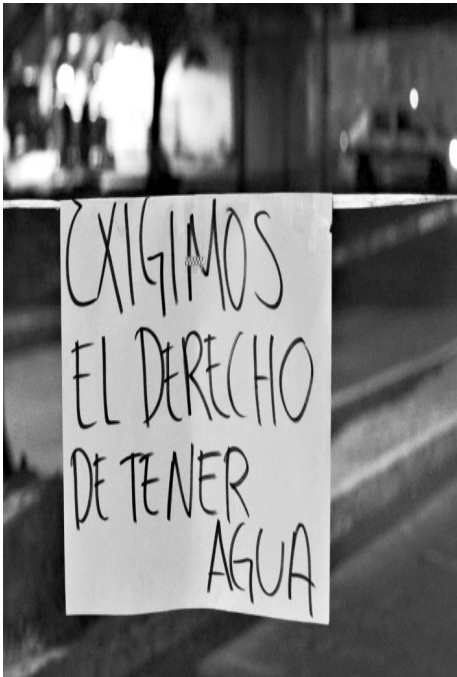 EXIGIMOS
EL DERECHO
DE TENER
AGUA